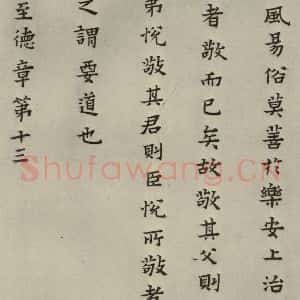 風易俗莫善於樂安上治
者敬而已矣故敬其父則
弟悅敬其君則臣悅所敬者
之謂要道也
至德章第十三
Shufawang.cn